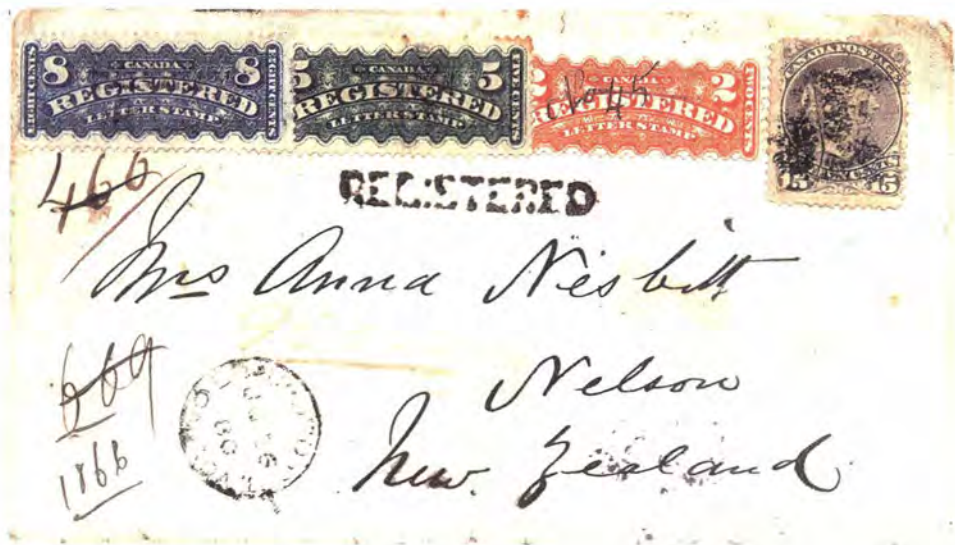 8 CANADA 8
REGISTERED
LETTER STAMP
EIGHT CENTS
EIGHT CENTS
5 CANADA 5
REGISTERED
LETTER STAMP
FIVE CENTS
2 CANADA 2
REGISTERED
LETTER STAMP
TWO CENTS
CANADA POSTAGE
15 CENTS 15
466
REGISTERED
Mrs Anna Nesbitt
669
Nelson
1866
New Zealand